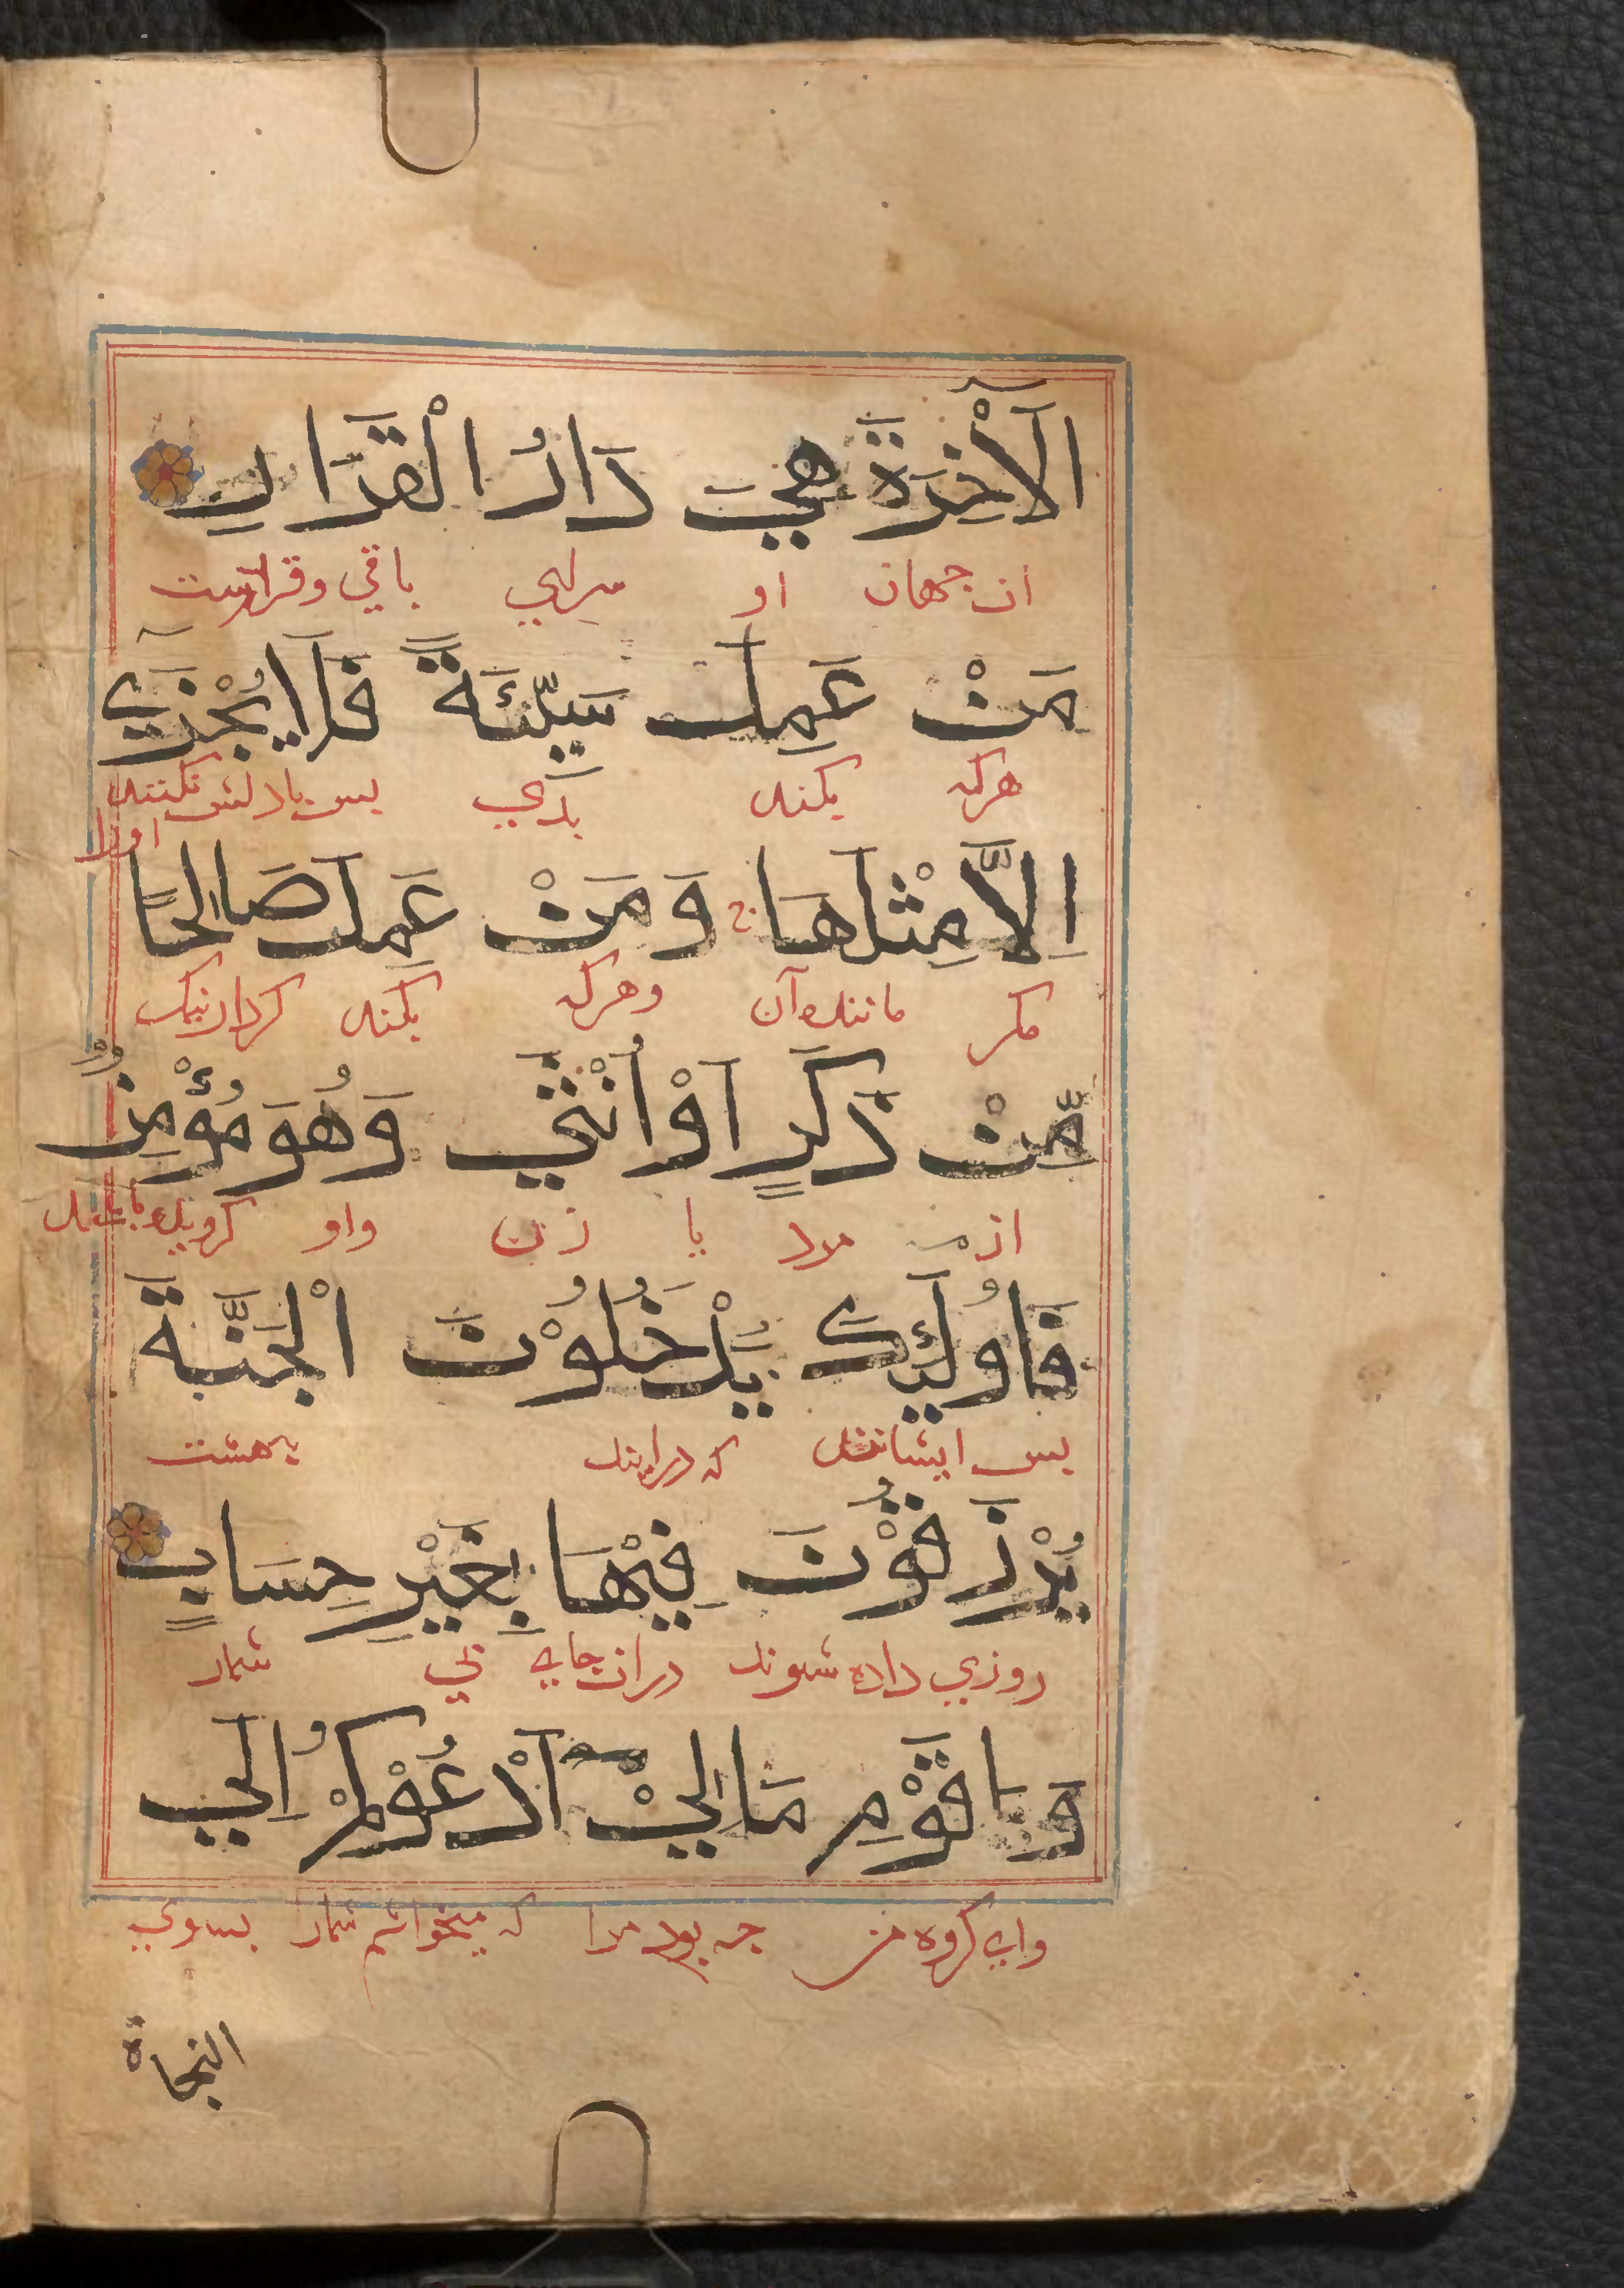 الْآخِرَةَ هِيَ دَارُ الْقَرَارِ
ان جهان او سراي باقي وقرارست
مَنْ عَمِلَ سَيِّئَةً فَلَا يُجْزَىٰٓ
هركه بكند بدي بس باداش نكنند
اورا
اِلَّا مِثْلَهَا ج وَمَنْ عَمِلَ صَالِحًا
مكر مانند آن وهركه بكند كردار نيك
مِّنْ ذَكَرٍ اَوْ اُنْثَي وَهُوَ مُؤْمِنٌ
از مرد يا زن واو كرويده باشد
فَاُولَٓئِكَ يَدْخُلُوْنَ الْجَنَّةَ
بس ايشانند كه درايند بهشت
يُرْزَقُوْنَ فِيْهَا بِغَيْرِ حِسَابٍ
روزي داده شوند دران جاي بي شمار
وَيَا قَوْمِ مَا لِيْٓ اَدْعُوْكُمْ اِلَي
واي كروه من جه بود مرا كه ميخوانم شمارا بسوي
النجاة